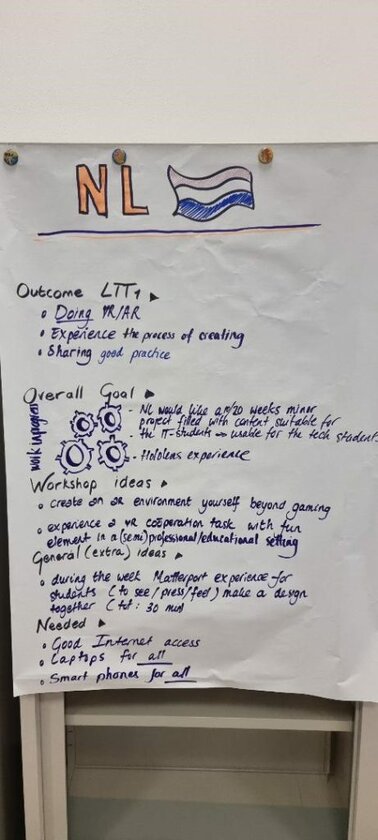 NL
Outcome LTT1
Doing VR/AR
Experience the process of creating
Sharing good practice
Overall Goal
work in progress
- NL would like a 20 weeks minor
project filled with content suitable for
the IT-students → usable for the tech students
- Hololens experience
Workshop ideas
create an vr environment yourself beyond gaming
experience a vr coöperation task with fun
element in a (semi) professional/educational setting
General (extra) ideas
during the week Matterport experience for
students (to see/press/feel) make a design
together (tot: 30 min)
Needed
Good Internet access
Laptops for all
Smart phones for all